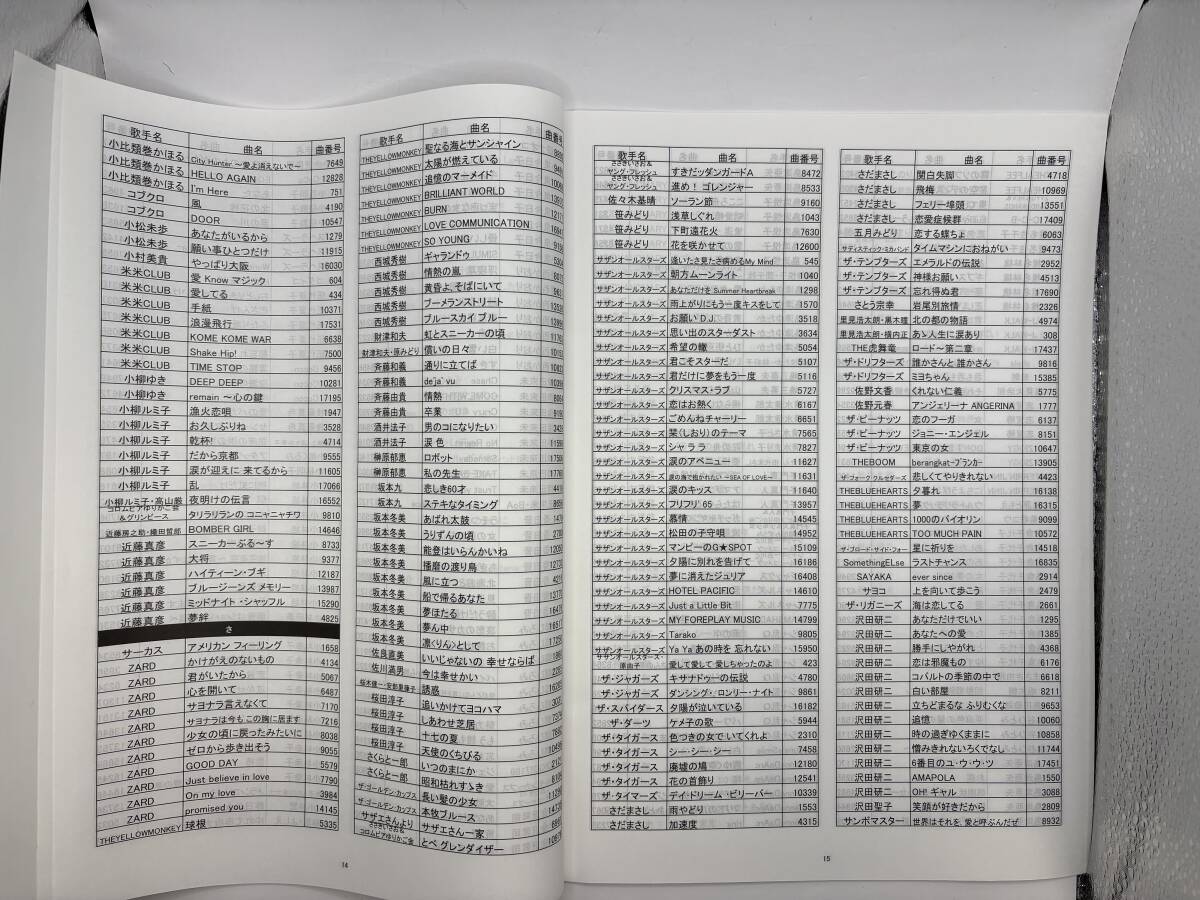 歌手名 曲名 曲番号
小比類巻かほる City Hunter ～愛よ消えないで～ 7649
小比類巻かほる HELLO AGAIN 12828
小比類巻かほる I'm Here 751
コブクロ 風 4190
コブクロ DOOR 10547
小松未歩 あなたがいるから 1279
小松未歩 願い事ひとつだけ 11915
小村美貴 やっぱり大阪 16030
米米CLUB 愛 Know マジック 604
米米CLUB 愛してる 434
米米CLUB 手紙 10371
米米CLUB 浪漫飛行 17531
米米CLUB KOME KOME WAR 6638
米米CLUB Shake Hip! 7500
米米CLUB TIME STOP 9456
小柳ゆき DEEP DEEP 10281
小柳ゆき remain ～心の鍵 17195
小柳ルミ子 漁火恋唄 1947
小柳ルミ子 お久しぶりね 3528
小柳ルミ子 乾杯! 4714
小柳ルミ子 だから京都 9555
小柳ルミ子 涙が迎えに 来てるから 11605
小柳ルミ子 乱 17066
小柳ルミ子・高山厳 夜明けの伝言 16552
コロムビアゆりかご会&グリンピース タリラリランのコニャニャチワ 9810
近藤房之助・織田哲郎 BOMBER GIRL 14646
近藤真彦 スニーカーぶる～す 8733
近藤真彦 大将 9377
近藤真彦 ハイティーン・ブギ 12187
近藤真彦 ブルージーンズ メモリー 13987
近藤真彦 ミッドナイト・シャッフル 15290
近藤真彦 夢絆 4825
さ
サーカス アメリカン フィーリング 1658
ZARD かけがえのないもの 4134
ZARD 君がいたから 5067
ZARD 心を開いて 6487
ZARD サヨナラ言えなくて 7170
ZARD サヨナラは今も この胸に居ます 7216
ZARD 少女の頃に戻ったみたいに 8038
ZARD ゼロから歩き出そう 9055
ZARD GOOD DAY 5579
ZARD Just believe in love 7790
ZARD On my love 3984
ZARD promised you 14145
THEYELLOWMONKEY 球根 5335
歌手名 曲名 曲番号
THEYELLOWMONKEY 聖なる海とサンシャイン
THEYELLOWMONKEY 太陽が燃えている
THEYELLOWMONKEY 追憶のマーメイド
THEYELLOWMONKEY BRILLIANT WORLD
THEYELLOWMONKEY BURN
THEYELLOWMONKEY LOVE COMMUNICATION
THEYELLOWMONKEY SO YOUNG
西城秀樹 ギャランドゥ
西城秀樹 情熱の嵐
西城秀樹 黄昏よ、そばにいて
西城秀樹 ブーメランストリート
西城秀樹 ブルースカイ ブルー
財津和夫 虹とスニーカーの頃
財津和夫・原みどり 償いの日々
斉藤和義 通りに立てば
斉藤和義 de'ja' vu
斉藤由貴 情熱
斉藤由貴 卒業
酒井法子 男のコになりたい
酒井法子 涙色
榊原郁恵 ロボット
榊原郁恵 私の先生
坂本九 悲しき60才
坂本九 ステキなタイミング
坂本冬美 あばれ太鼓
坂本冬美 うりずんの頃
坂本冬美 能登はいらんかいね
坂本冬美 播磨の渡り鳥
坂本冬美 風に立つ
坂本冬美 船で帰るあなた
坂本冬美 夢ほたる
坂本冬美 夢ん中
坂本冬美 凛(りん)として
佐良直美 いいじゃないの 幸せならば
佐川満男 今は幸せかい
誘惑
桜田淳子 追いかけてヨコハマ
桜田淳子 しあわせ芝居
桜田淳子 十七の夏
桜田淳子 天使のくちびる
さくらと一郎 いつのまにか
さくらと一郎 昭和枯れすゝき
ザ・ゴールデン・カップス 長い髪の少女
ザ・ゴールデン・カップス 本牧ブルース
サザエさんより サザエさん一家
ささきいさお&コロムビアゆりかご会 とべ グレンダイザー
14
歌手名 曲名 曲番号
ささきいさお&ヤング・フレッシュ すきだッダンガードA 8472
ささきいさお&ヤング・フレッシュ 進め! ゴレンジャー 8533
佐々木基晴 ソーラン節 9160
笹みどり 浅草しぐれ 1043
笹みどり 下町遠花火 7630
笹みどり 花を咲かせて 12600
サザンオールスターズ 逢いたさ見たさ病めるMy Mind 545
サザンオールスターズ 朝方ムーンライト 1040
サザンオールスターズ あなただけを Summer Heartbreak 1298
サザンオールスターズ 雨上がりにもう一度キスをして 1570
サザンオールスターズ お願いD.J. 3518
サザンオールスターズ 思い出のスターダスト 3634
サザンオールスターズ 希望の轍 5054
サザンオールスターズ 君こそスターだ 5107
サザンオールスターズ 君だけに夢をもう一度 5116
サザンオールスターズ クリスマス・ラブ 5727
サザンオールスターズ 恋はお熱く 6167
サザンオールスターズ ごめんねチャーリー 6651
サザンオールスターズ 栞(しおり)のテーマ 7565
サザンオールスターズ シャララ 7827
サザンオールスターズ 涙のアベニュー 11627
サザンオールスターズ 涙の海で抱かれたい ～SEA OF LOVE～ 11631
サザンオールスターズ 涙のキッス 11640
サザンオールスターズ フリフリ'65 13957
サザンオールスターズ 慕情 14545
サザンオールスターズ 松田の子守唄 14952
サザンオールスターズ マンピーのG★SPOT 15109
サザンオールスターズ 夕陽に別れを告げて 16186
サザンオールスターズ 夢に消えたジュリア 16408
サザンオールスターズ HOTEL PACIFIC 14610
サザンオールスターズ Just a Little Bit 7775
サザンオールスターズ MY FOREPLAY MUSIC 14799
サザンオールスターズ Tarako 9805
サザンオールスターズ Ya Ya あの時を 忘れない 15950
サザンオールスターズ・原由子 愛して愛して 愛しちゃったのよ 423
ザ・ジャガーズ キサナドゥーの伝説 4780
ザ・ジャガーズ ダンシング・ロンリー・ナイト 9861
ザ・スパイダース 夕陽が泣いている 16182
ザ・ダーツ ケメ子の歌 5944
ザ・タイガース 色つきの女で いてくれよ 2310
ザ・タイガース シー・シー・シー 7458
ザ・タイガース 廃墟の鳩 12180
ザ・タイガース 花の首飾り 12541
ザ・タイマーズ デイ・ドリーム・ビリーバー 10339
さだまさし 雨やどり 1553
さだまさし 加速度 4315
歌手名 曲名 曲番号
さだまさし 関白失脚 4718
さだまさし 飛梅 10969
さだまさし フェリー埠頭 13551
さだまさし 恋愛症候群 17409
五月みどり 恋する蝶ちょ 6063
サディスティック・ミカバンド タイムマシンにおねがい 9473
ザ・テンプターズ エメラルドの伝説 2952
ザ・テンプターズ 神様お願い 4513
ザ・テンプターズ 忘れ得ぬ君 17690
さとう宗幸 岩尾別旅情 2326
里見浩太朗・黒木瞳 北の都の物語 4974
里見浩太朗・横内正 あゝ人生に涙あり 308
THE虎舞竜 ロード～第二章 17437
ザ・ドリフターズ 誰かさんと 誰かさん 9816
ザ・ドリフターズ ミヨちゃん 15385
佐野文香 くれない仁義 5775
佐野元春 アンジェリーナ ANGERINA 1777
ザ・ピーナッツ 恋のフーガ 6137
ザ・ピーナッツ ジョニー・エンジェル 8151
ザ・ピーナッツ 東京の女 10647
THEBOOM berangkat-ブランカ- 13905
ザ・フォーク・クルセダーズ 悲しくてやりきれない 4423
THEBLUEHEARTS 夕暮れ 16138
THEBLUEHEARTS 夢 16315
THEBLUEHEARTS 1000のバイオリン 9099
THEBLUEHEARTS TOO MUCH PAIN 10572
ザ・ブロード・サイド・フォー 星に祈りを 14518
SomethingELse ラストチャンス 16835
SAYAKA ever since 2914
サヨコ 上を向いて歩こう 2479
ザ・リガニーズ 海は恋してる 2661
沢田研二 あなただけでいい 1295
沢田研二 あなたへの愛 1385
沢田研二 勝手にしやがれ 4368
沢田研二 恋は邪魔もの 6176
沢田研二 コバルトの季節の中で 6618
沢田研二 白い部屋 8211
沢田研二 立ちどまるな ふりむくな 9653
沢田研二 追憶 10060
沢田研二 時の過ぎゆくままに 10858
沢田研二 憎みきれないろくでなし 11744
沢田研二 6番目のユ・ウ・ウ・ツ 17451
沢田研二 AMAPOLA 1550
沢田研二 OH! ギャル 3088
沢田聖子 笑顔が好きだから 2809
サンボマスター 世界はそれを、愛と呼ぶんだぜ 8932
15